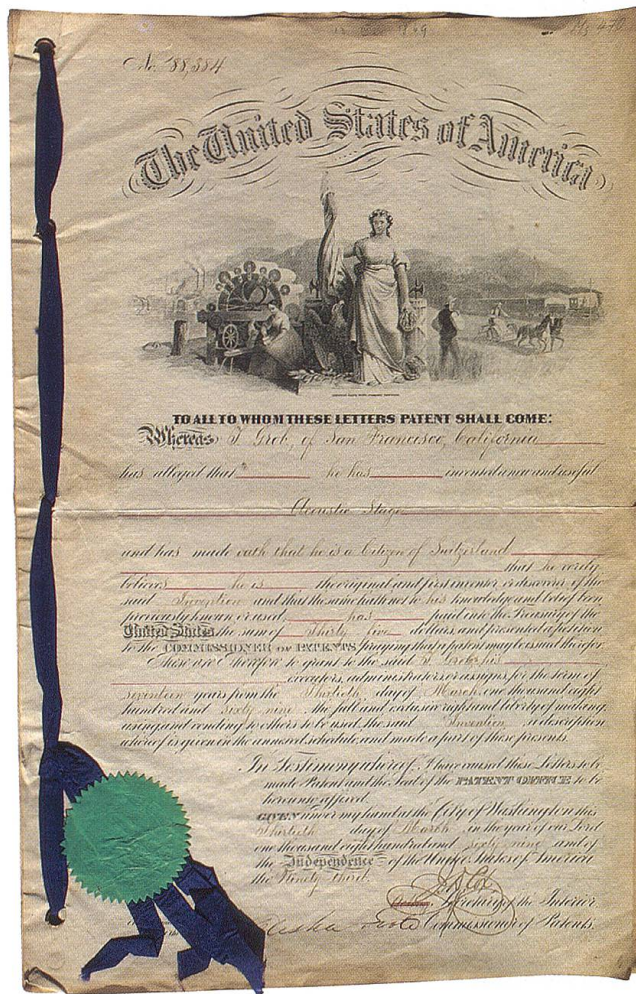 No. 88,884
The United States of America
TO ALL TO WHOM THESE LETTERS PATENT SHALL COME:
Whereas T. Grob, of San Francisco, California
has alleged that he has invented a new and useful
Acoustic Stage
and has made oath that he is a Citizen of Switzerland
that he verily
believes he is the original and first inventor or discoverer of the
said Invention and that the same hath not to his knowledge and belief been
previously known or used; has paid into the Treasury of the
United States the sum of Thirty five dollars, and presented a petition
to the COMMISSIONER OF PATENTS, praying that a patent may be issued therefor
These are Therefore to grant to the said T. Grob, his
executors, administrators or assigns, for the term of
seventeen years from the Thirtieth day of March, one thousand eight
hundred and sixty nine the full and exclusive right and liberty of making,
using, and vending to others to be used, the said Invention a description
whereof is given in the annexed schedule, and made a part of these presents.
In Testimony whereof, I have caused these Letters to be
made Patent and the Seal of the PATENT OFFICE to be
hereunto affixed.
GIVEN under my hand at the City of Washington this
Thirtieth day of March in the year of our Lord
one thousand eight hundred and sixty nine and of
the Independence of the United States of America
the Ninety third.
J. D. Cox
Secretary of the Interior
Elisha Foote Commissioner of Patents.